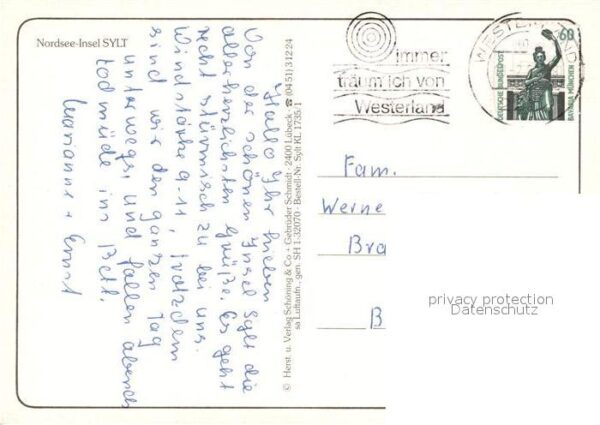 Nordsee-Insel SYLT
Hallo Ihr Lieben
Von der schönen Insel Sylt die
allerherzlichsten Grüße. Es geht
recht stürmisch zu bei uns.
Windstärke 9-11, trotzdem
sind wir den ganzen Tag
unterwegs, und fallen abends
todmüde ins Bett.
Marianne + Ernst
© Herst. u. Verlag Schöning & Co + Gebrüder Schmidt · 2400 Lübeck · ☎ (0451) 31224
sa Luftaufn., gen. SH 1-32070 · Bestell-Nr. Sylt KL 1735/1
immer
träum ich von
Westerland
WESTERLAND
60
DEUTSCHE BUNDESPOST
BAVARIA MÜNCHEN
Fam.
Werne
Bra
B
privacy protection
Datenschutz